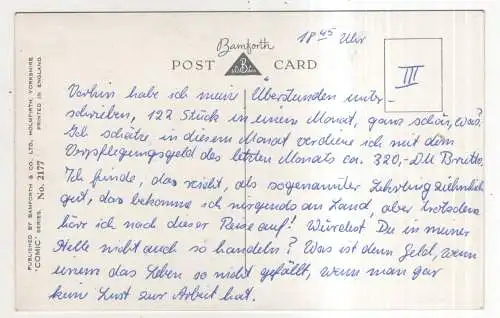 Bamforth
18 45 Uhr
POST CARD
III
Vorhin habe ich meine Überstunden unter-
schrieben, 122 Stück in einem Monat, ganz schön, was?
Ich schätze in diesem Monat verdiene ich mit dem
Verpflegungsgeld des letzten Monats ca. 320,-DM Brutto.
Ich finde, das reicht, als sogenannter Lehrling ziehmlich
gut, das bekomme ich nirgends an Land, aber trotzdem
hör ich nach dieser Reise auf! Würdest Du in meiner
Stelle nicht auch so handeln? Was ist denn Geld, wenn
einem das Leben so nicht gefällt, wenn man gar
keine Lust zur Arbeit hat.
PUBLISHED BY BAMFORTH & CO. LTD., HOLMFIRTH, YORKSHIRE
"COMIC" SERIES. No. 2177 PRINTED IN ENGLAND.